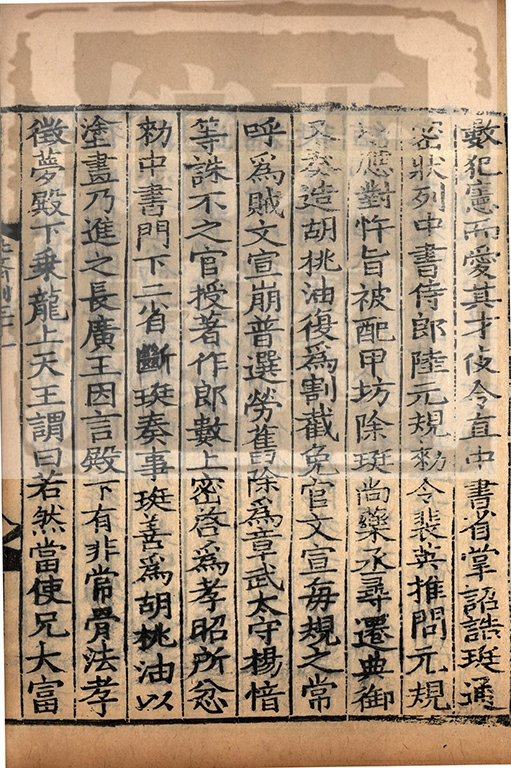 數犯憲而愛其才伎令直中書省掌詔誥珽通
密狀列中書侍郎陸元規勑令裴英推問元規
應對忤旨被配甲坊除珽尚藥丞尋遷典御
又奏造胡桃油復為割截免官文宣每規之常
呼為賊文宣崩普選勞舊除為章武太守楊愔
等誅不之官授著作郎數上密啓為孝昭所忿
勑中書門下二省斷珽奏事珽善為胡桃油以
塗畫乃進之長廣王因言殿下有非常骨法孝
徵夢殿下乗龍上天王謂曰若然當使兄大富